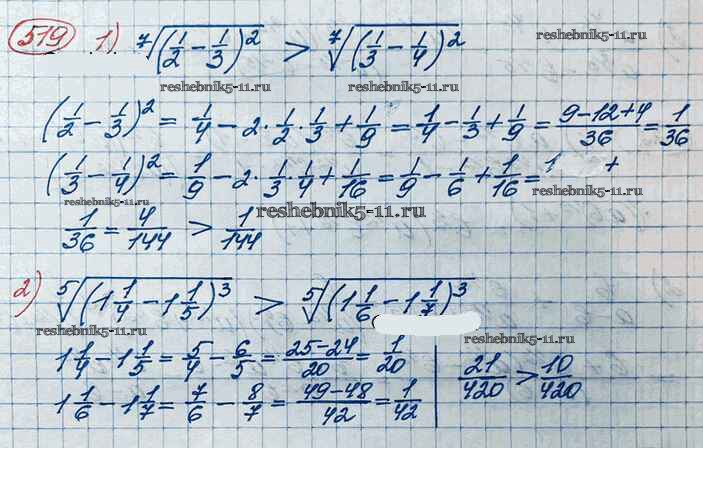 519 1) ⁷√((1/2 − 1/3)²) > ⁷√((1/3 − 1/4)²)
reshebnik5-11.ru
reshebnik5-11.ru reshebnik5-11.ru
(1/2 − 1/3)² = 1/4 − 2·1/2·1/3 + 1/9 = 1/4 − 1/3 + 1/9 = (9−12+4)/36 = 1/36
(1/3 − 1/4)² = 1/9 − 2·1/3·1/4 + 1/16 = 1/9 − 1/6 + 1/16 = 1 +
reshebnik5-11.ru reshebnik5-11.ru
reshebnik5-11.ru
1/36 = 4/144 > 1/144
2) ⁵√((1 1/4 − 1 1/5)³) > ⁵√((1 1/6 − 1 1/7)³)
reshebnik5-11.ru reshebnik5-11.ru
1 1/4 − 1 1/5 = 5/4 − 6/5 = (25−24)/20 = 1/20
21/420 > 10/420
1 1/6 − 1 1/7 = 7/6 − 8/7 = (49−48)/42 = 1/42